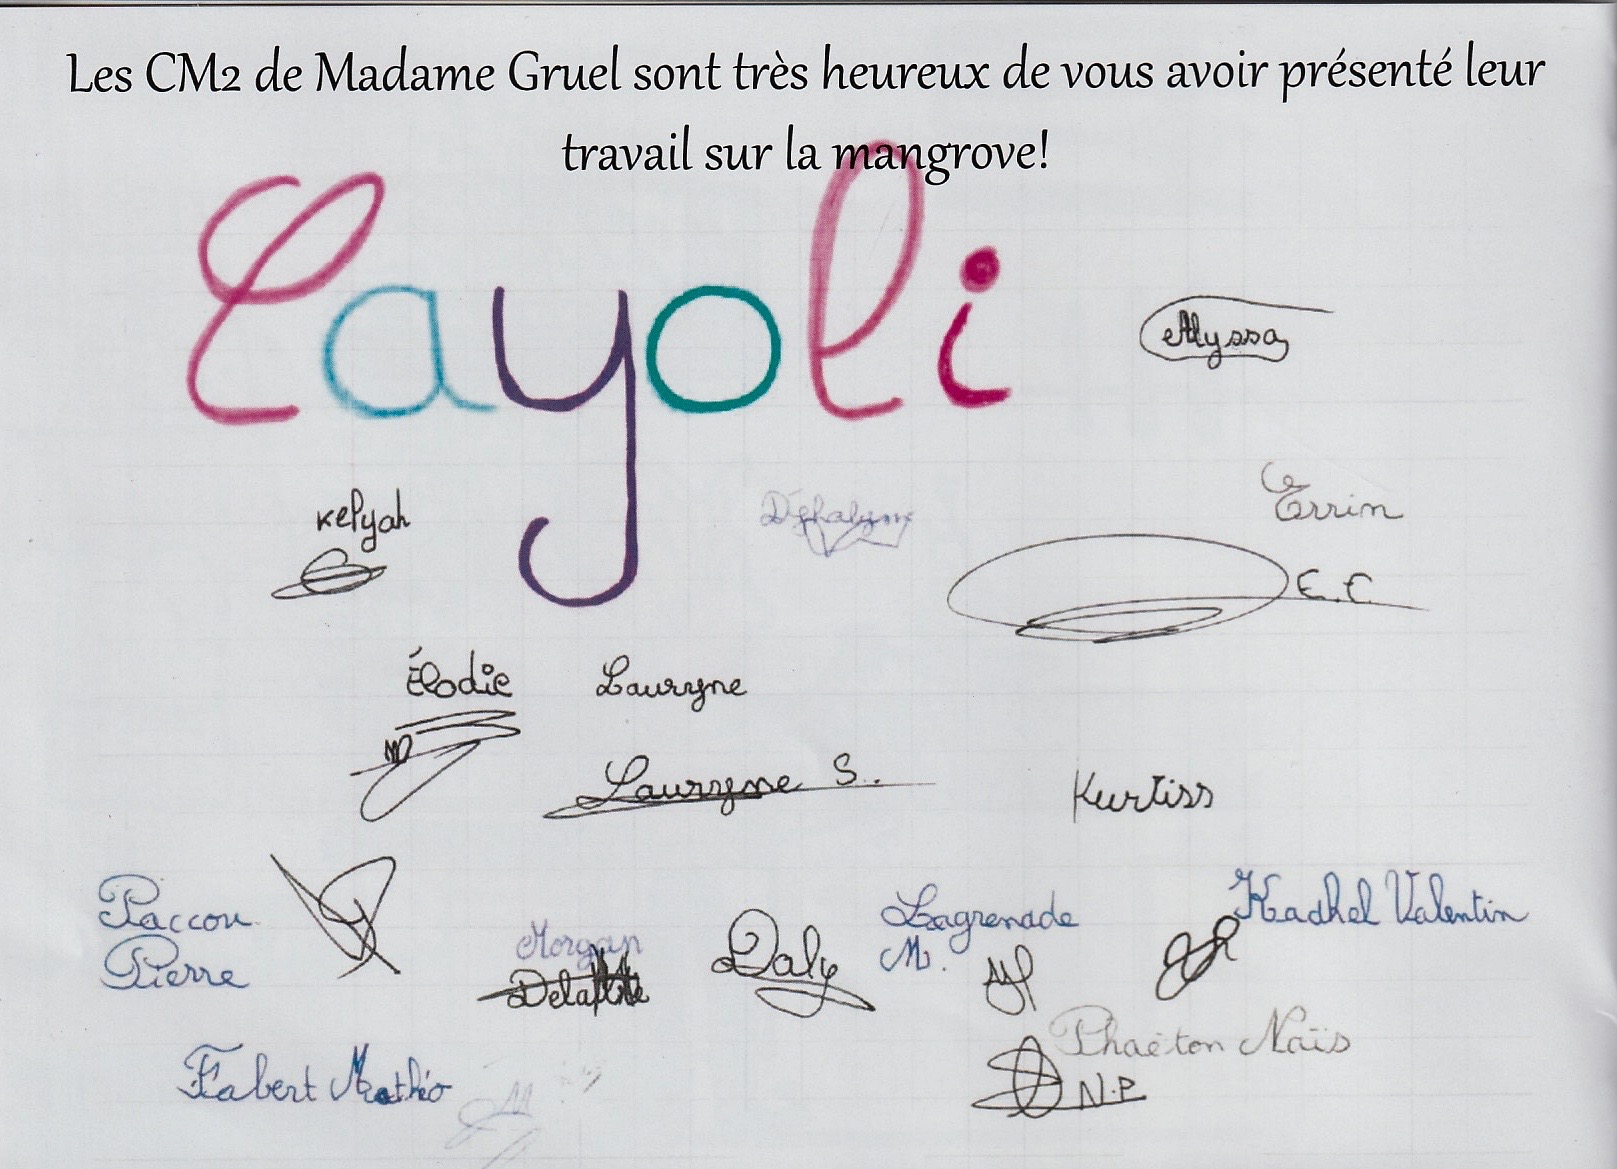 Les CM2 de Madame Gruel sont très heureux de vous avoir présenté leur
travail sur la mangrove!
Cayoli
Alyssa
Kelyah
Errin
E.C.
Élodie
Lauryne
Lauryne S..
Kurtiss
Paccou
Pierre
Morgan
Daly
Lagrenade
M.
Kadhel Valentin
Phaëton Naïs
N.P
Fabert Mathéo